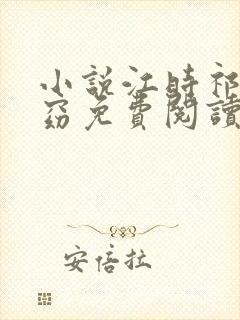 小說江時祁
窈免費閱讀
安倍拉